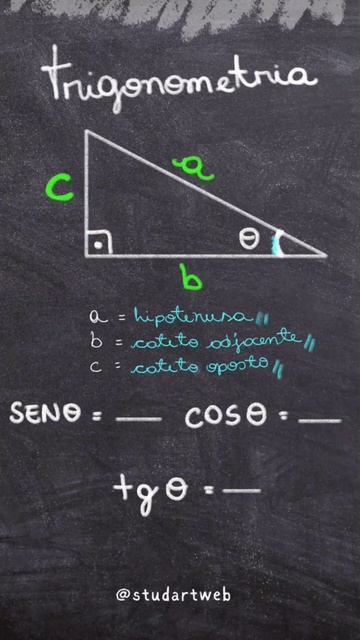 Trigonometria
a
c
θ
b
a = hipotenusa
b = cateto adjacente
c = cateto oposto
SENθ = ___ COSθ = ___
tgθ = ___
@studartweb